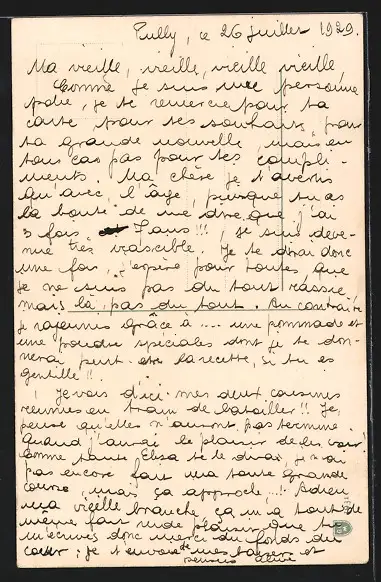 Pully, ce 26 juillet 1929.
Ma vieille, vieille, vieille vieille,
Comme je suis une personne
polie, je te remercie pour ta
carte, pour tes souhaits, pour
ta grande nouvelle, mais en
tous cas pas pour tes compli-
ments. Ma chère je t'avertis
qu'avec l'âge, puisque tu as
la bonté de me dire que j'ai
3 fois 7 ans!!!, je suis deve-
nue très irascible. Je te dirai donc
une fois, j'espère pour toutes, que
je ne suis pas du tout rassie
mais là, pas du tout. Au contraire
je rajeunis grâce à .... une pommade et
une poudre spéciales dont je te don-
nerai peut-être la recette, si tu es
gentille!!
Je vois d'ici mes deux cousines
réunies en train de batailler!! Je
pense qu'elles n'auront pas terminé
quand j'aurai le plaisir de les voir.
Comme tante Elisa te le dirai, je n'ai
pas encore fait ma toute grande
course, mais ça approche...! Adieu
ma vieille branche, ça m'a tout de
même fait rude plaisir que tu
m'écrives donc merci du fonds du
cœur; je t'envoie de mes baisers et